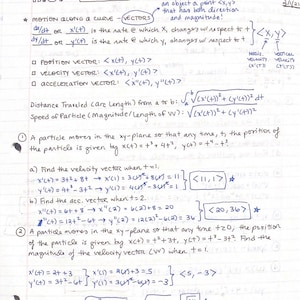 an object a point <x,y>
that has both direction
and magnitude!
* MOTION ALONG A CURVE - VECTORS
dx/dt or x'(t) is the rate @ which x changes w/ respect to t
dy/dt or y'(t) is the rate @ which y changes w/ respect to t
<x, y>
□ POSITION VECTOR: <x(t), y(t)>
□ VELOCITY VECTOR: <x'(t), y'(t)>
□ ACCELERATION VECTOR: <x"(t), y"(t)>
Distance Traveled (Arc Length) from a to b: ∫ √(x'(t))² + (y'(t))² dt
Speed of Particle (Magnitude/Length of VV): √(x'(t))² + (y'(t))²
① A particle moves in the xy-plane so that any time, t, the position of
the particle is given by x(t) = t³ + 4t², y(t) = t⁴ - t³.
a) Find the velocity vector when t = 1.
x'(t) = 3t² + 8t → x'(1) = 3(1)² + 8(1) = 11
y'(t) = 4t³ - 3t² → y'(1) = 4(1)³ - 3(1)² = 1
<11, 1> *
b) Find the acc. vector when t = 2.
x"(t) = 6t + 8 → x"(2) = 6(2) + 8 = 20
y"(t) = 12t² - 6t → y"(2) = 12(2)² - 6(2) = 36
<20, 36> *
② A particle moves in the xy-plane so that any time t ≥ 0, the position
of the particle is given by x(t) = t² + 3t, y(t) = t³ - 3t². Find the
magnitude of the velocity vector (VV) when t = 1.
x'(t) = 2t + 3
y'(t) = 3t² - 6t
x'(1) = 2(1) + 3 = 5
y'(1) = 3(1)² - 6(1) = -3
<5, -3>